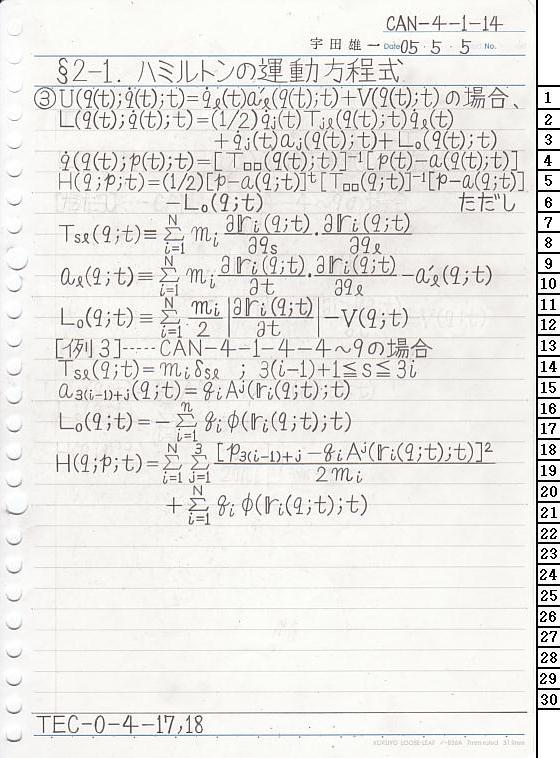 CAN-4-1-14
宇田雄一 Date 05・5・5 No.
§2-1. ハミルトンの運動方程式
③U(q(t);q̇(t);t)=q̇ₗ(t)a′ₗ(q(t);t)+V(q(t);t)の場合、
L(q(t);q̇(t);t)=(1/2)q̇ⱼ(t)Tⱼₗ(q(t);t)q̇ₗ(t)
+q̇ⱼ(t)aⱼ(q(t);t)+L₀(q(t);t)
q̇(q(t);p(t);t)=[T□□(q(t);t)]⁻¹[p(t)-a(q(t);t)]
H(q;p;t)=(1/2)[p-a(q;t)]ᵗ[T□□(q;t)]⁻¹[p-a(q;t)]
-L₀(q;t) ただし
Tₛₗ(q;t)≡Σ_{i=1}^{N} mᵢ ∂𝕣ᵢ(q;t)/∂qₛ・∂𝕣ᵢ(q;t)/∂qₗ
aₗ(q;t)≡Σ_{i=1}^{N} mᵢ ∂𝕣ᵢ(q;t)/∂t・∂𝕣ᵢ(q;t)/∂qₗ-a′ₗ(q;t)
L₀(q;t)≡Σ_{i=1}^{N} mᵢ/2 |∂𝕣ᵢ(q;t)/∂t|-V(q;t)
[例3]‥‥‥CAN-4-1-4-4〜9の場合
Tₛₗ(q;t)=mᵢδₛₗ ; 3(i-1)+1≦s≦3i
a_{3(i-1)+j}(q;t)=gᵢAʲ(𝕣ᵢ(q;t);t)
L₀(q;t)=-Σ_{i=1}^{n} gᵢφ(𝕣ᵢ(q;t);t)
H(q;p;t)=Σ_{i=1}^{N}Σ_{j=1}^{3} [p_{3(i-1)+j}-gᵢAʲ(𝕣ᵢ(q;t);t)]²/2mᵢ
+Σ_{i=1}^{N} gᵢφ(𝕣ᵢ(q;t);t)
TEC-0-4-17,18
KOKUYO LOOSE-LEAF ノ-836A 7mm ruled 31 lines
1
2
3
4
5
6
7
8
9
10
11
12
13
14
15
16
17
18
19
20
21
22
23
24
25
26
27
28
29
30